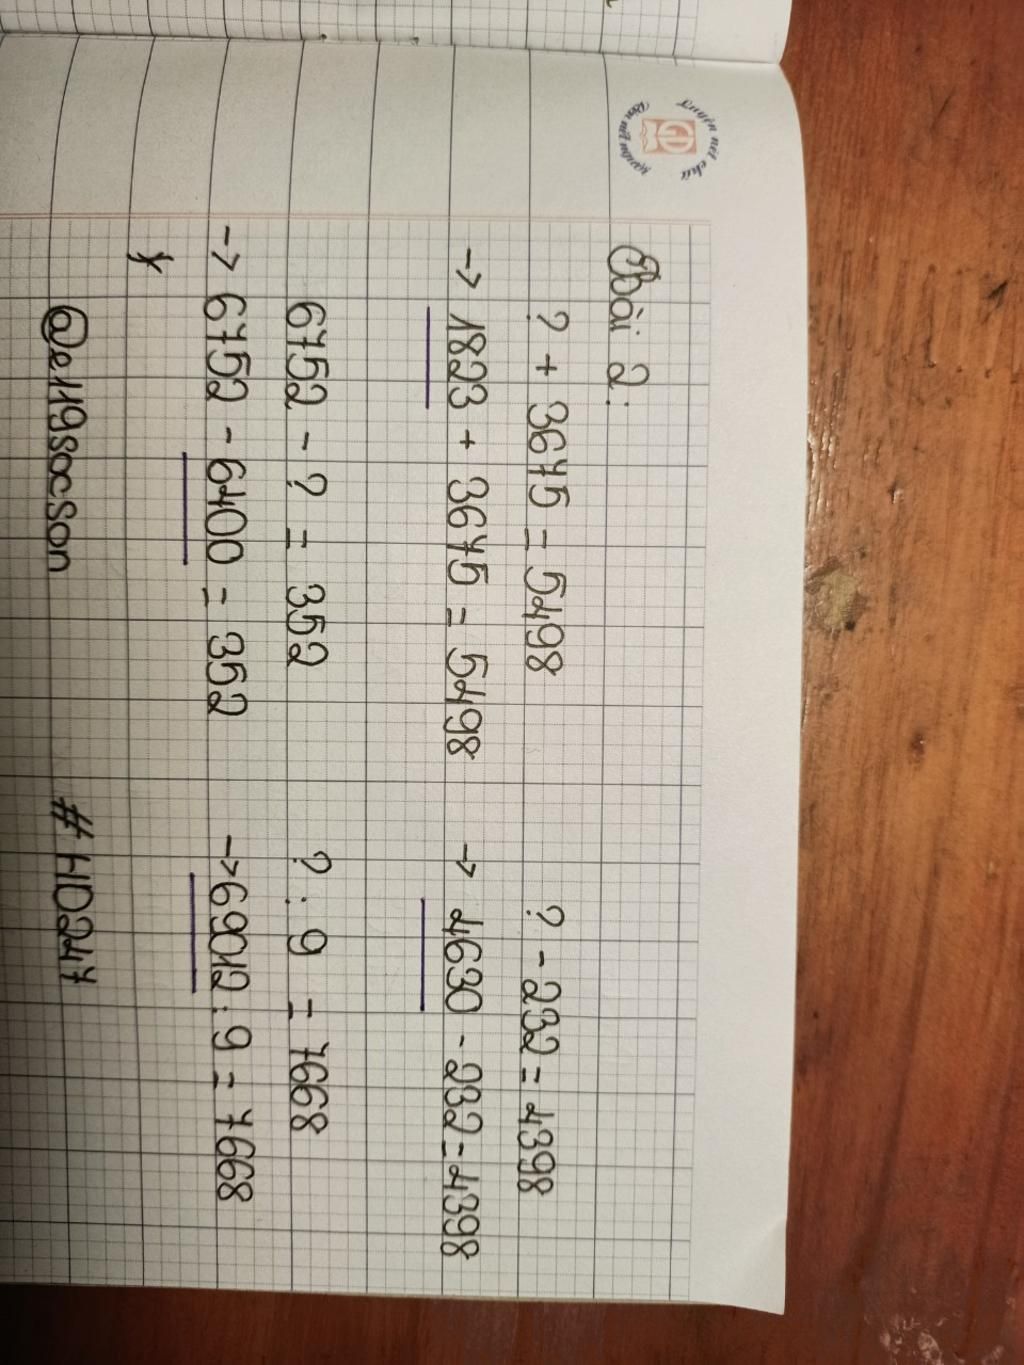 Luyện nét chữ
Rèn nết người
Bài 2:
? + 3675 = 5498 ? - 232 = 4398
→ 1823 + 3675 = 5498 → 4630 - 232 = 4398
6752 - ? = 352 ? : 9 = 7668
→ 6752 - 6400 = 352 → 69012 : 9 = 7668
@e119socson #HD247